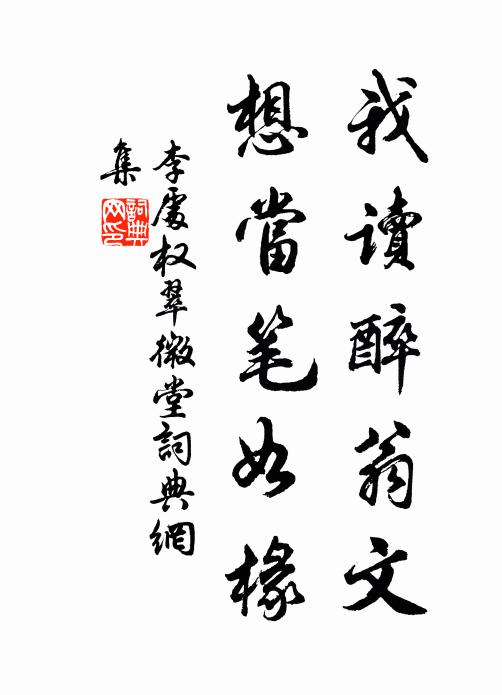 我讀醉翁文
想當笔如椽
李處权翠微堂詞典網
集
詞典网印